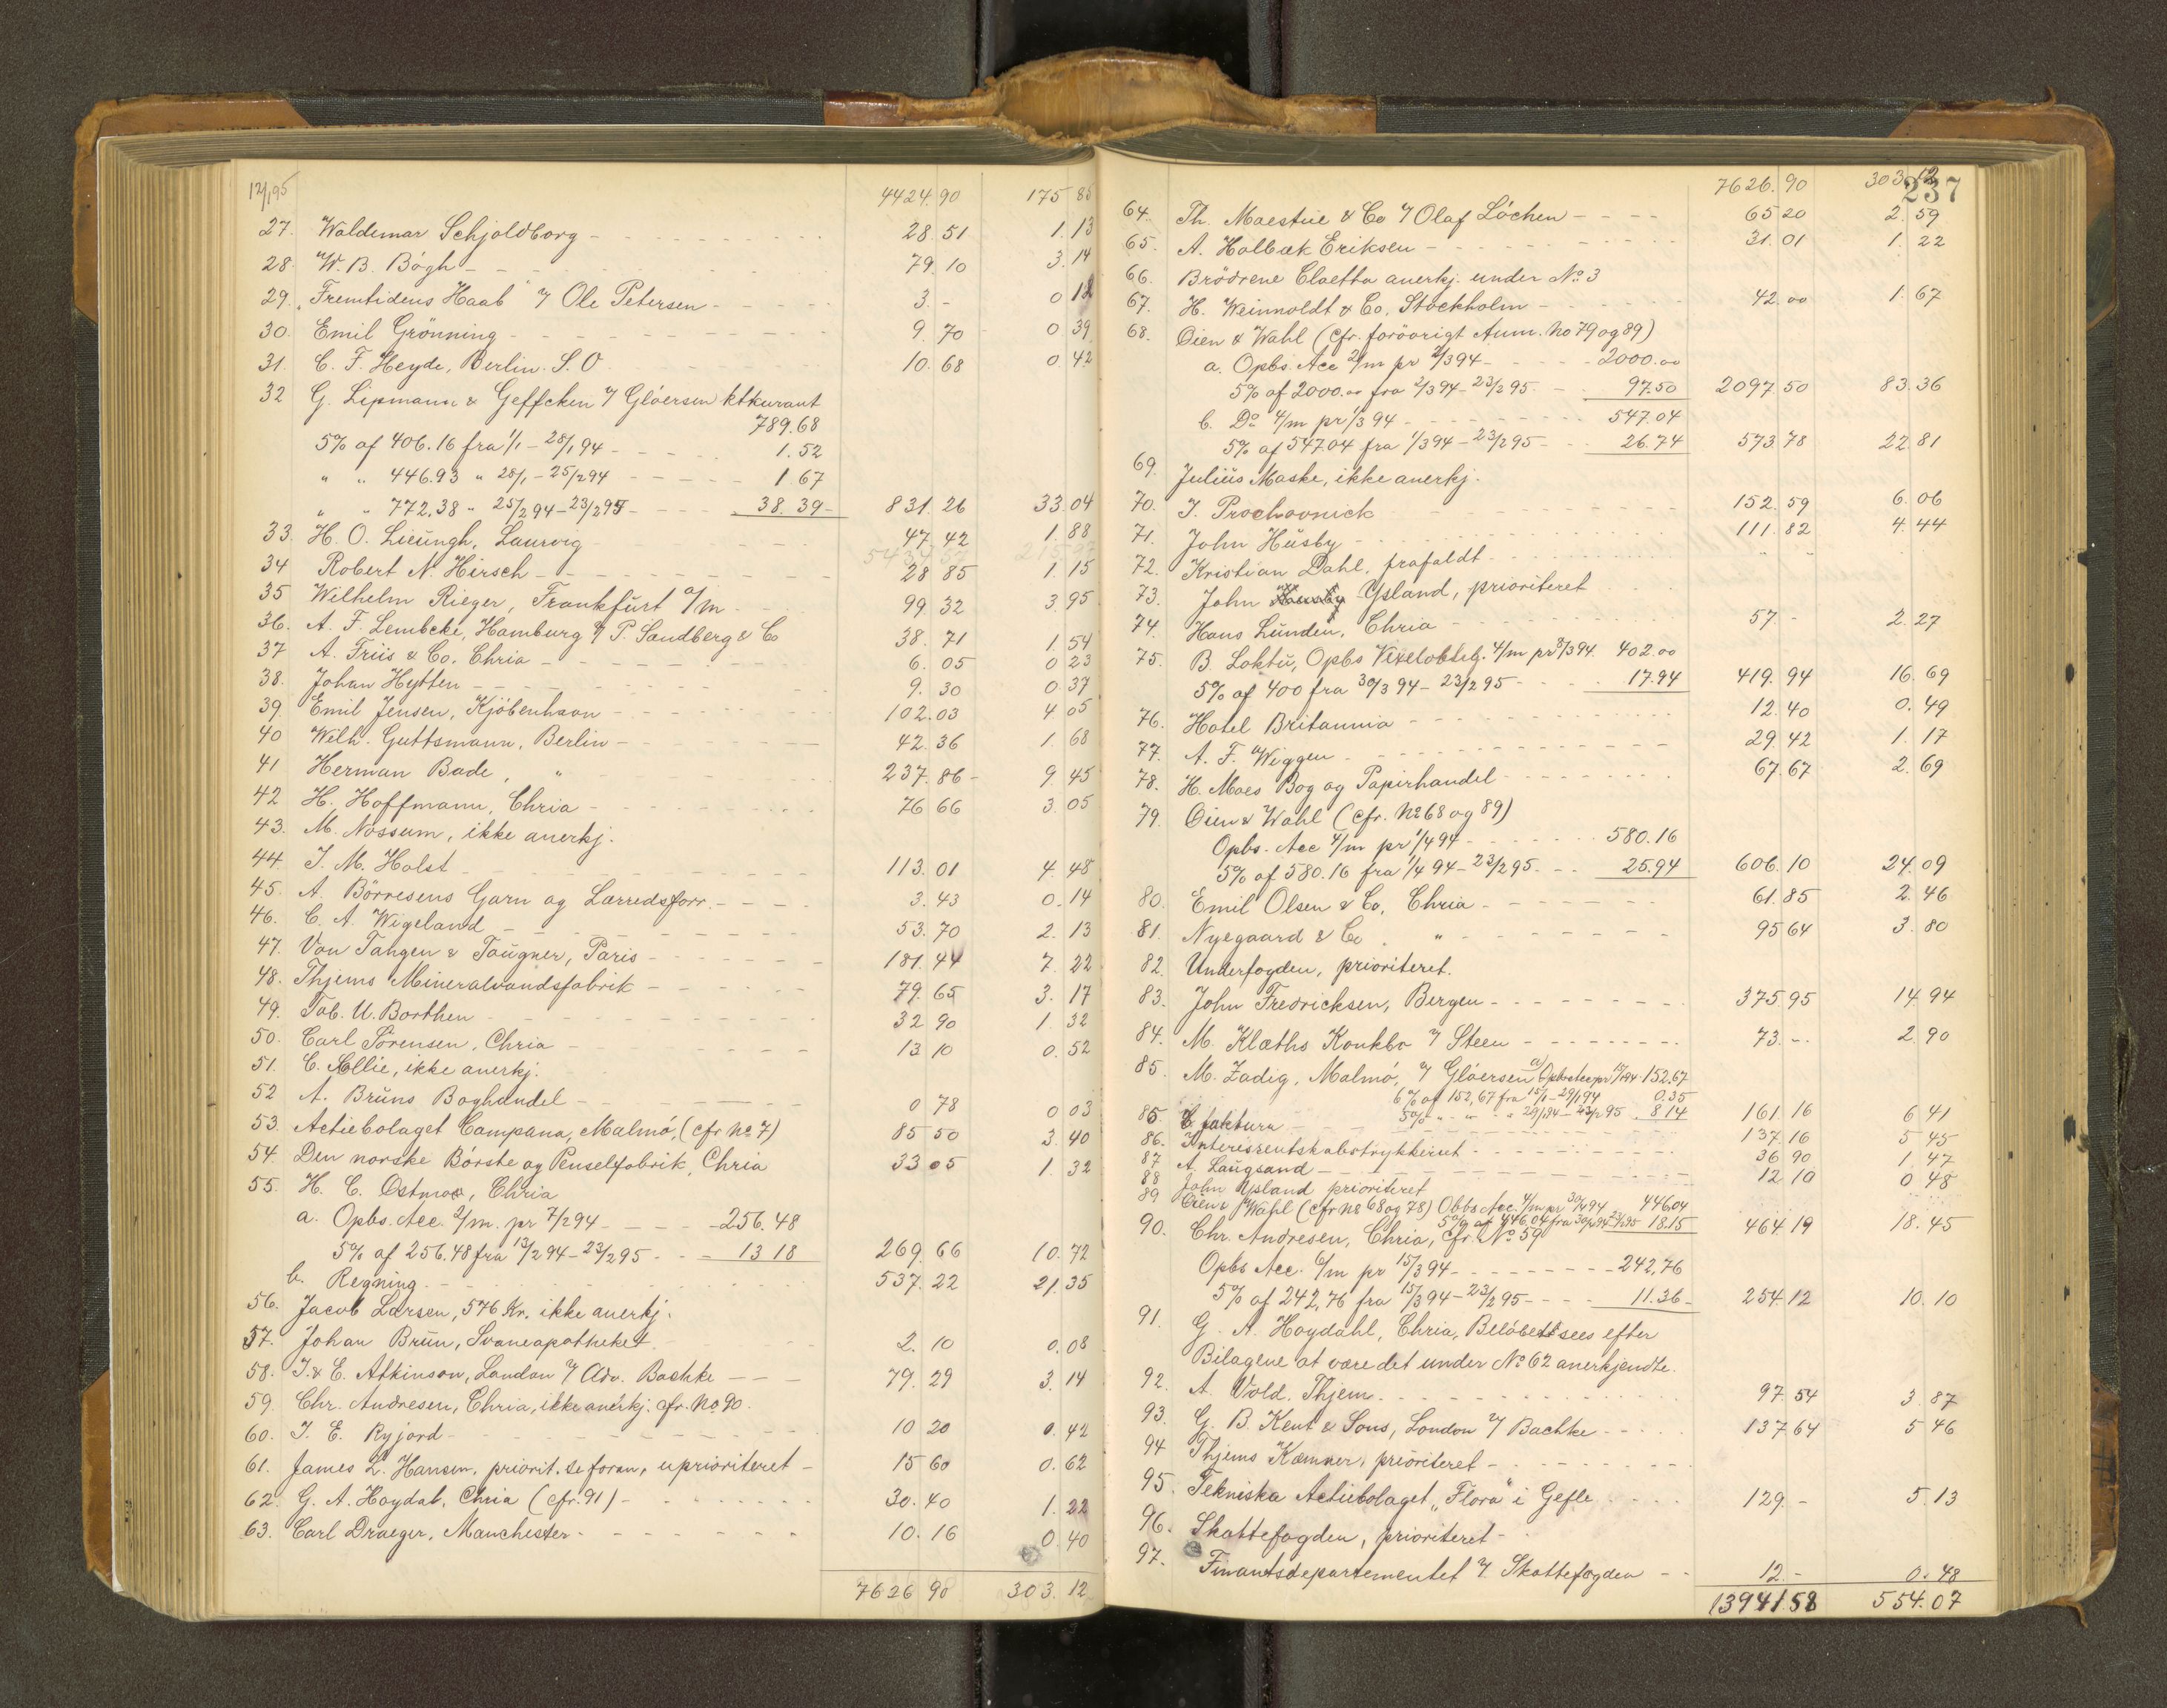 12/1 95 4424.90 175 85
27. Waldemar Schjoldborg - 28.51 1.13
28. W. B. Bögh - 79.10 3.14
29. "Fremtidens Haab" v/ Ole Petersen - 3.- 0 12
30. Emil Grönning - 9.70 0 39
31. C. F. Heyde, Berlin. S.O. 10.68 0.42
32 G. Lipmann & Geffcken v/ Glöersen ktkurant
789.68
5% af 406.16 fra 1/1 - 28/1 94 - 1.52
" " 446.93 " 28/1 - 25/2 94 - 1.67
" " 772.38 " 25/2 94 - 23/2 95 - 38.39 831.26 33.04
33. H. O. Lieungh, Laurvig - 47.42 1.88
34 Robert N. Hirsch - 28 85 1.15
35 Wilhelm Rieger, Frankfurt a/m - 99 32 3.95
36. A. F. Lembcke, Hamburg v/ P. Sandberg & Co 38.71 1.54
37 A. Friis & Co. Chria - 6.05 0 23
38. Johan Hytten - 9.30 0.37
39. Emil Jensen, Kjöbenhavn - 102.03 4 05
40 Wilh. Guttsmann, Berlin - 42.36 1.68
41 Herman Bade, " 237.86 - 9.45
42 H. Hoffmann, Chria - 76 66 3.05
43. M. Nossum, ikke anerkj.
44. J. M. Holst - 113.01 4.48
45. A. Börresens Garn og Lærredsforr. - 3.43 0.14
46. C. A. Wigeland - 53.70 2.13
47. Von Tangen & Taugner, Paris - 181.44 7.22
48. Thjems Mineralvandsfabrik - 79.65 3.17
49. Tob. U. Borthen - 32 90 1.32
50. Carl Sörensen, Chria - 13 10 0.52
51. C. Ollie, ikke anerkj.
52 A. Bruns Boghandel - 0 78 0 03
53. Actiebolaget Campana, Malmö, (cfr No 7) 85 50 3.40
54. Den norske Börste og Penselfabrik, Chria 33 05 1.32
55. H. C. Ostmoe, Chria
a. Opbs. Acc. 2/m. pr 7/2 94 - 256.48
5% af 256.48 fra 13/2 94 - 23/2 95 - 13 18 269.66 10.72
b. Regning - 537.22 21.35
56. Jacob Larsen, 576 Kr. ikke anerkj.
57. Johan Brun, Svaneapotheket 2.10 0.08
58. J. & E. Atkinson, London v/ Adv. Bachke - 79.29 3.14
59. Chr. Andresen, Chria, ikke anerkj. cfr. No 90.
60. J. E. Ryjord - 10 20 0.42
61. James L. Hansen, priorit. se foran, uprioriteret - 15 60 0.62
62. G. A. Hoydal, Chria (cfr. 91) - 30.40 1.22
63. Carl Draeger, Manchester - 10.16 0.40
7626 90 303.12
7626.90 303.12
237
64. Th. Maestue & Co v/ Olaf Löchen - 65 20 2.59
65. A. Holbæk Eriksen - 31.01 1.22
66. Brödrene Cloetta anerkj. under No 3
67. H. Weinnoldt & Co, Stockholm - 42.00 1.67
68. Oien & Wahl (cfr. forövrigt Anm. No 79 og 89)
a. Opbs. Acc 2/m pr 2/3 94 - 2000.00
5% af 2000.00 fra 2/3 94 - 23/2 95 - 97.50 2097.50 83.36
b. Do 4/m pr 1/3 94 - 547.04
5% af 547.04 fra 1/3 94 - 23/2 95 - 26.74 573.78 22.81
69. Julius Maske, ikke anerkj.
70. J. Prochovnick 152.59 6.06
71. John Husby - 111.82 4.44
72. Kristian Dahl, frafaldt - " " "
73. John Husby Ysland, prioriteret
74. Hans Lunden, Chria - 57 - 2.27
75. B. Loktu, Opbs 4/m pr 394 402.00
5% af 400 fra 30/3 94 - 23/2 95 - 17.94 419.94 16.69
76. Hotel Britannia - 12.40 0.49
77. A. F. Wiggen - 29.42 1.17
78. H. Moes Bog og Papirhandel - 67.67 2.69
79. Oien & Wahl (cfr. No 68 og 89)
Opbs. Acc 4/m pr 1/4 94 - 580.16
5% af 580.16 fra 1/4 94 - 23/2 95 - 25.94 606.10 24.09
80. Emil Olsen & Co, Chria - 61.85 2.46
81. Nyegaard & Co. " - 95 64 3.80
82. Underfogden, prioriteret.
83. John Fredricksen, Bergen - 375 95 14.94
84. M. Klæths Konkbo v/ Steen - 73.- 2.90
85. M. Zadig, Malmö, v/ Glöersen a) Opbs Acc pr 15/1 94 152.67
6% af 152,67 fra 15/1 - 29/1 94 0.35
5% " " " 29/1 94 - 23/2 95 8.14 161.16 6 41
85 b faktura - 137.16 5 45
86. Interessentskabstrykkeriet - 36 90 1 47
87 A. Laugsand - 12 10 0 48
88 John Ysland prioriteret
89 Oien & Wahl (cfr No 68 og 78) Obbs Acc. 4/m pr 30/4 94 446.04
5% af 446.04 fra 95 18.15 464.19 18.45
90. Chr. Andresen, Chria, cfr. No 59
Opbs Acc. 6/m pr 15/3 94 - 242,76
5% af 242,76 fra 15/3 94 - 23/2 95 - 11.36 - 254.12 10.10
91. G. A. Hoydahl, Chria, Belöbet sees efter
Bilagene at være det under No 62 anerkjendte.
92. A. Vold. Thjem - 97.54 3.87
93. G. B. Kent & Sons, London v/ Bachke - 137 64 5 46
94 Thjems Kæmner, prioriteret -
95. Tekniska Actiebolaget "Flora" i Gefle 129.- 5.13
96. Skattefogden, prioriteret -
97. Finantsdepartementet v/ Skattefogden - 12.- 0.48
13941.58 554.07